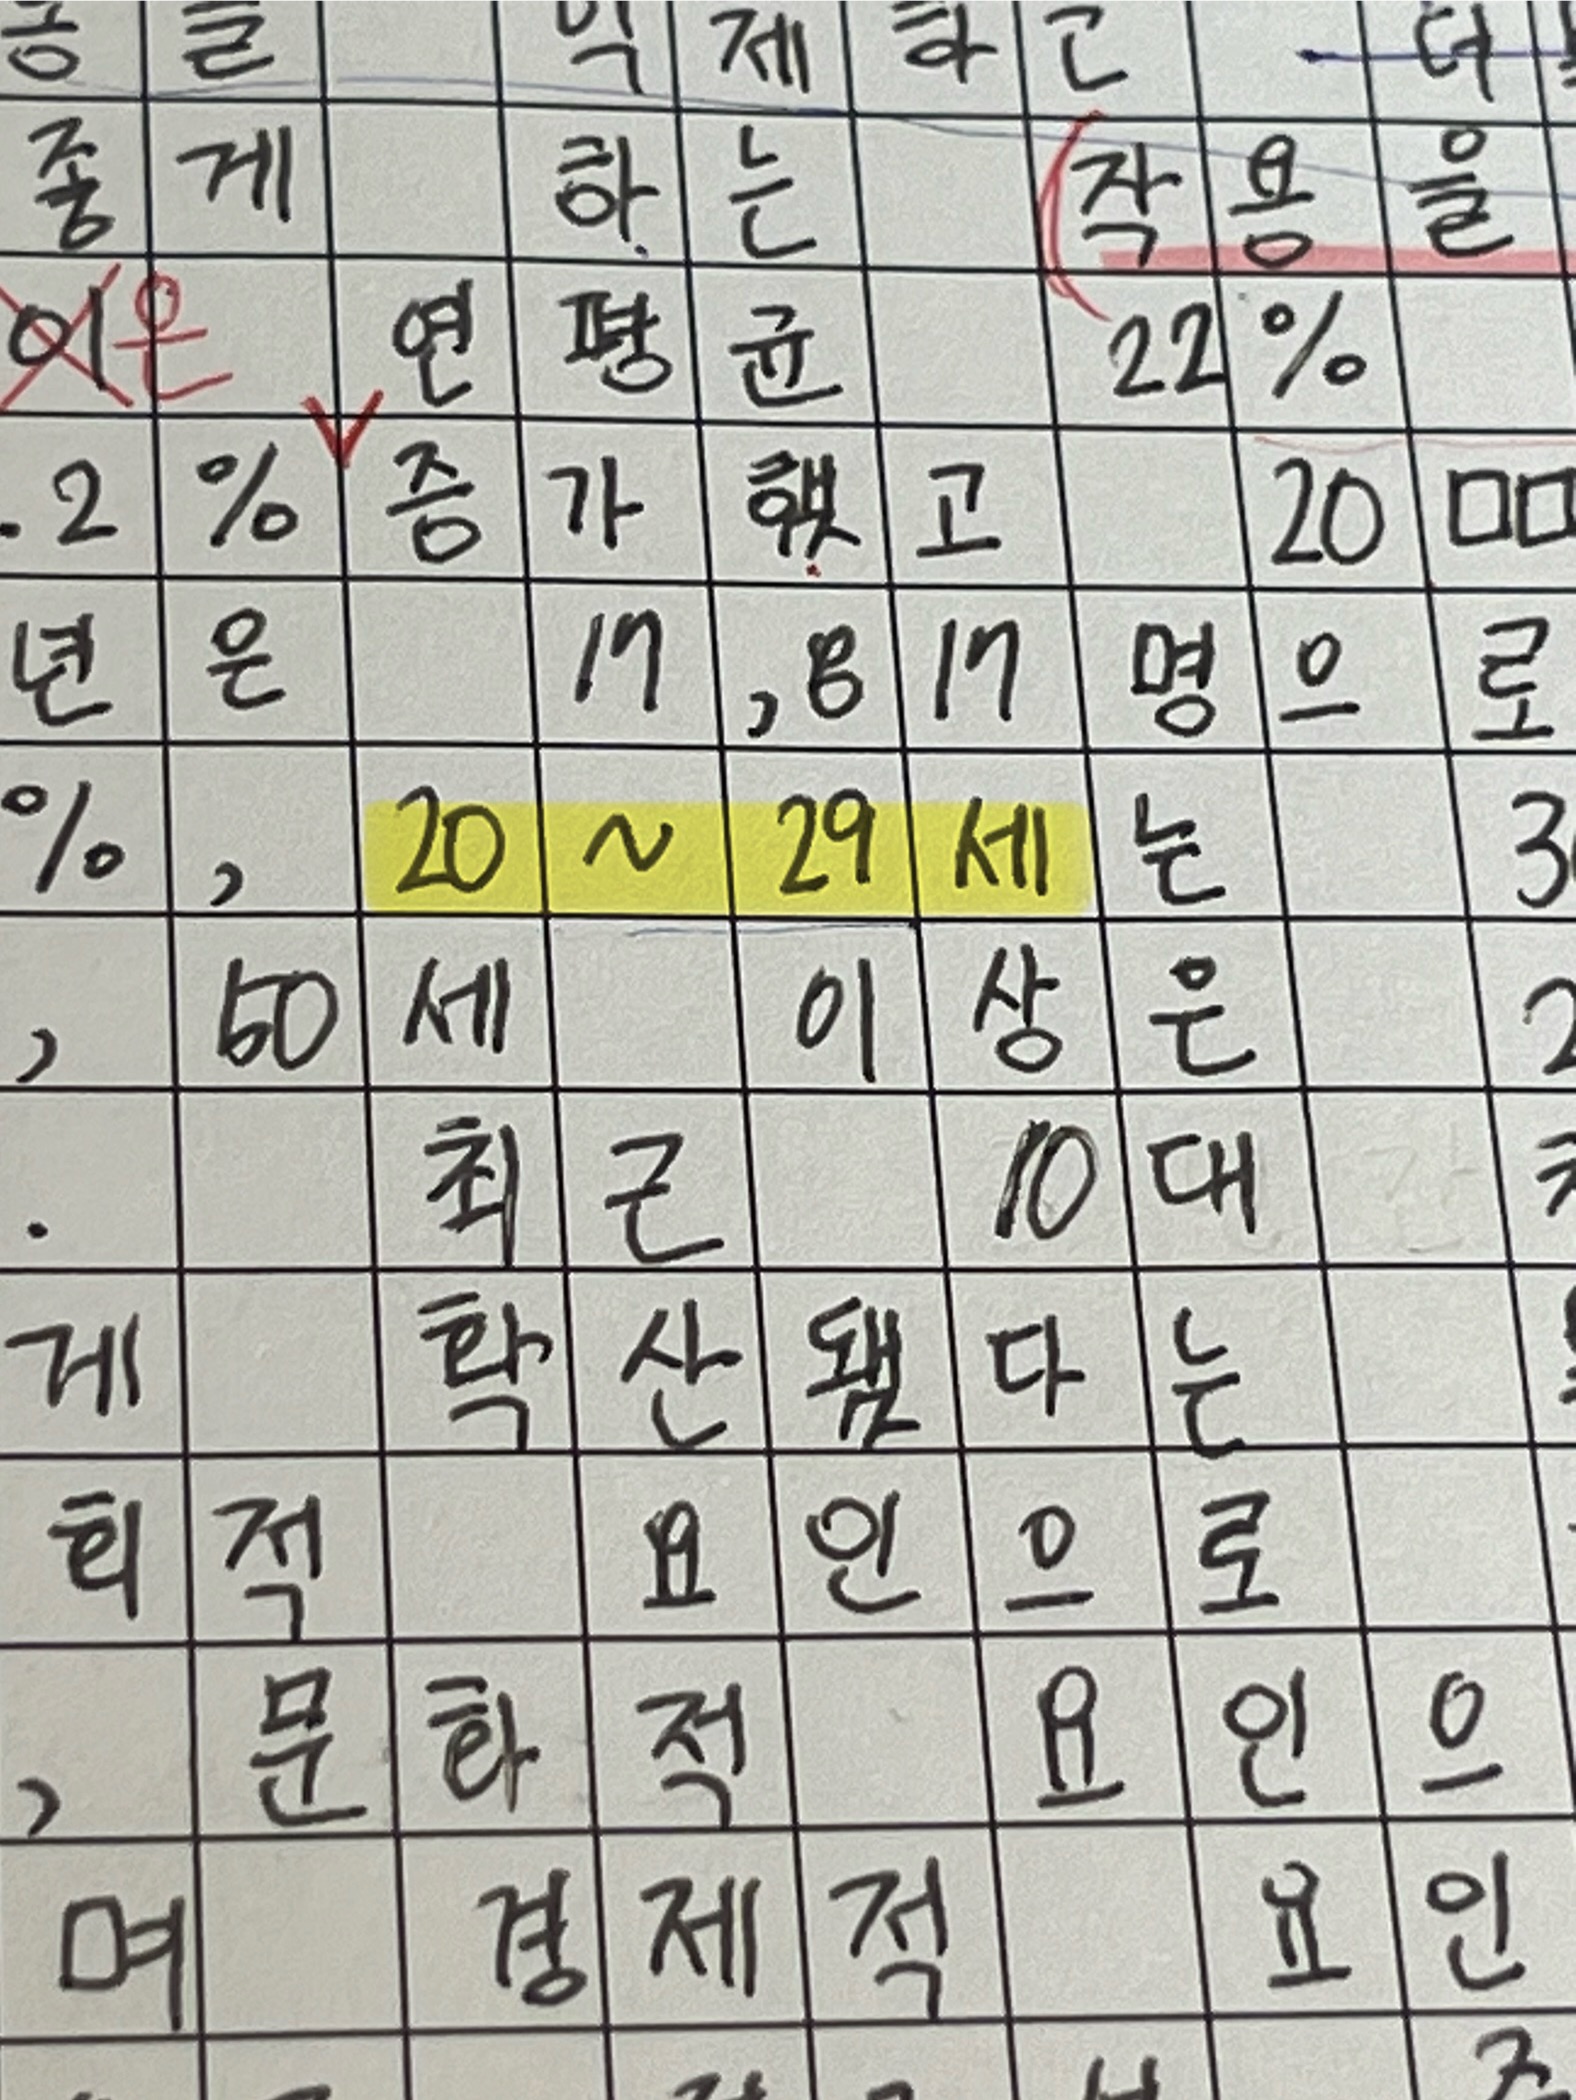 제하고 더
좋게 하는 작용을
이은 연평균 22%
.2% 증가했고 20□□
년은 17,817명으로
%, 20~29세는
, 50세 이상은
. 최근 10대
게 확산됐다는
회적 요인으로
, 문화적 요인으
며 경제적 요인